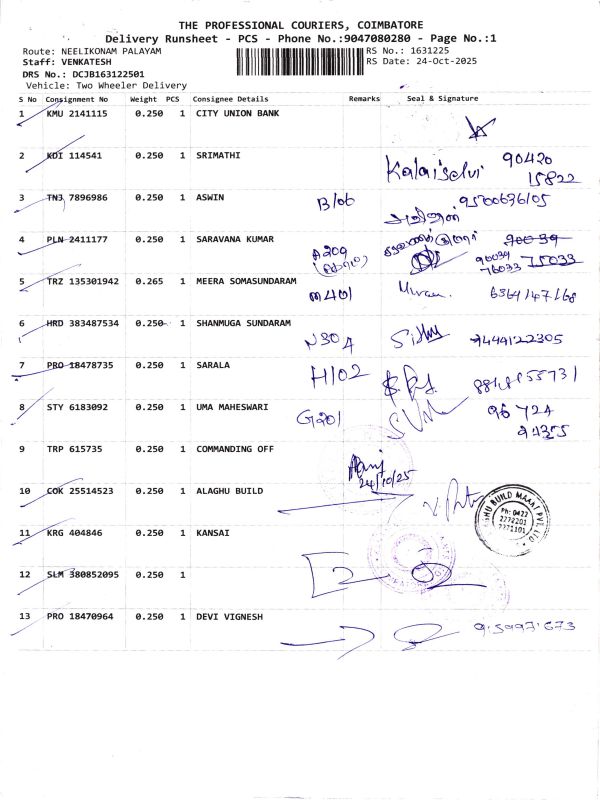 THE PROFESSIONAL COURIERS, COIMBATORE
Delivery Runsheet - PCS - Phone No.:9047080280 - Page No.:1
Route: NEELIKONAM PALAYAM RS No.: 1631225
Staff: VENKATESH RS Date: 24-Oct-2025
DRS No.: DCJB163122501
Vehicle: Two Wheeler Delivery
S No Consignment No Weight PCS Consignee Details Remarks Seal & Signature
1 KMU 2141115 0.250 1 CITY UNION BANK
2 KDI 114541 0.250 1 SRIMATHI Kalaiselvi 90420
15822
3 TNJ 7896986 0.250 1 ASWIN B/06 9500636105
4 PLN 2411177 0.250 1 SARAVANA KUMAR A209
90039
76033
5 TRZ 135301942 0.265 1 MEERA SOMASUNDARAM M401 6364147168
6 HRD 383487534 0.250 1 SHANMUGA SUNDARAM N30A 9444122305
7 PRO 18478735 0.250 1 SARALA H102
8 STY 6183092 0.250 1 UMA MAHESWARI G201 96724
94375
9 TRP 615735 0.250 1 COMMANDING OFF
24/10/25
10 COK 25514523 0.250 1 ALAGHU BUILD
Ph: 0422
2272201
2271101
11 KRG 404846 0.250 1 KANSAI
12 SLM 380852095 0.250 1 2
13 PRO 18470964 0.250 1 DEVI VIGNESH